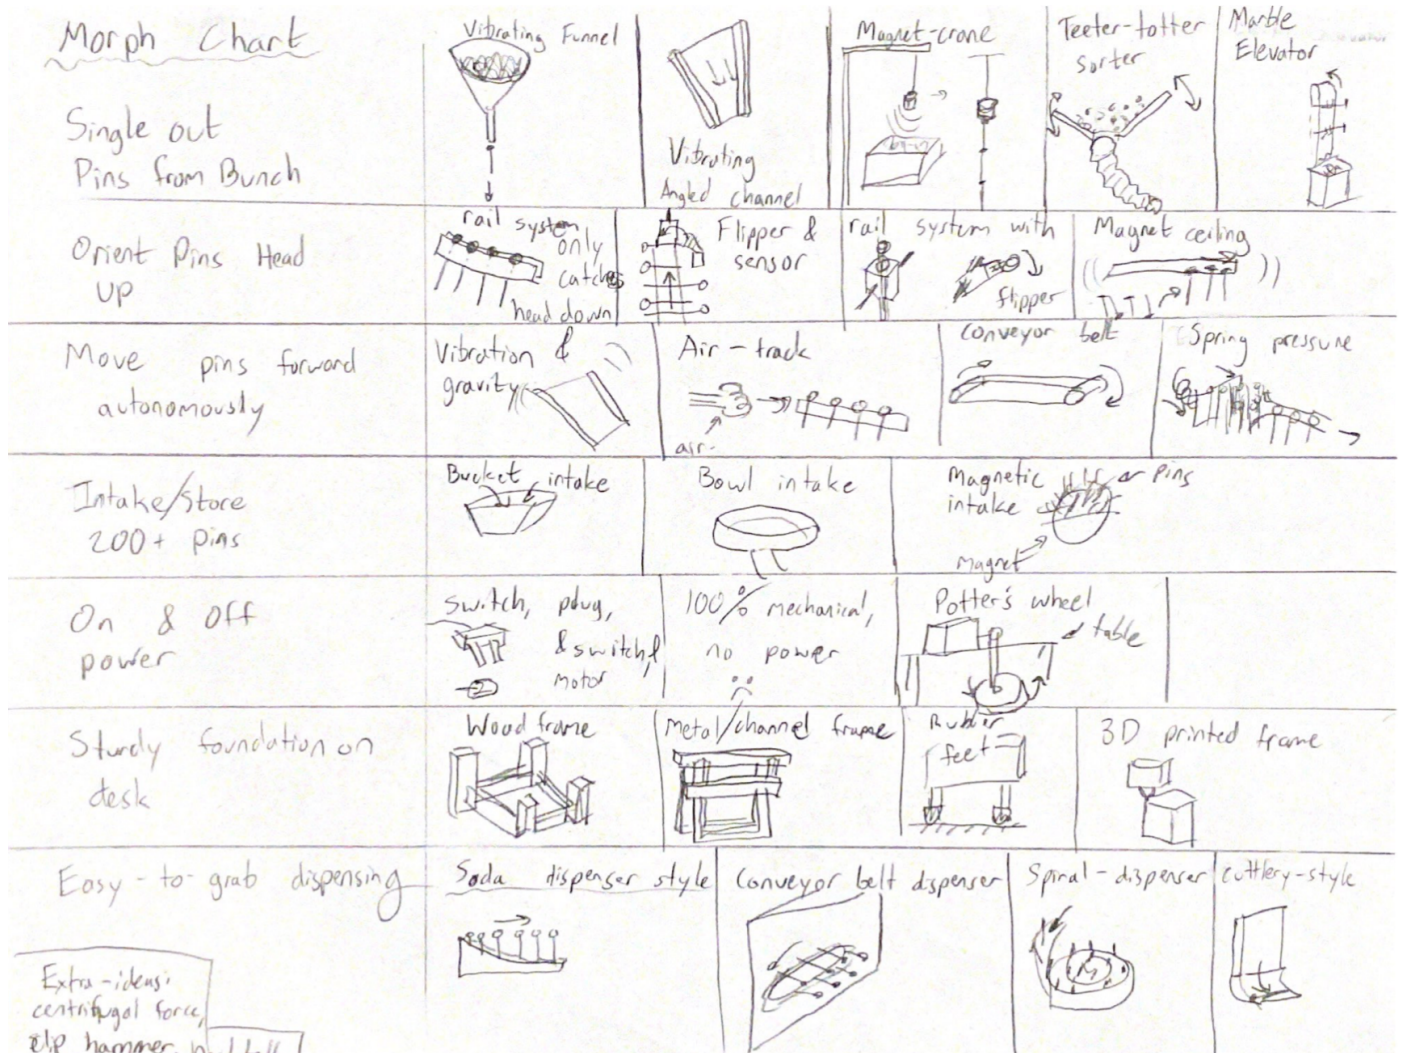 Morph Chart
Single out
Pins from Bunch
Vibrating Funnel
Vibrating
Angled channel
Magnet-crane
Teeter-totter
sorter
Marble
Elevator
Orient Pins Head
up
rail system
only
catches
head down
Flipper &
sensor
rail system with
flipper
Magnet ceiling
Move pins forward
autonomously
Vibration &
gravity
Air-track
air
conveyor belt
Spring pressure
Intake/Store
200+ pins
Bucket intake
Bowl intake
Magnetic
intake
pins
magnet
On & Off
power
switch, plug,
& switch
motor
100% mechanical,
no power
Potter's wheel
table
Sturdy foundation on
desk
Wood frame
Metal/channel frame
Rubber
feet
3D printed frame
Easy-to-grab dispensing
Soda dispenser style
Conveyor belt dispenser
Spiral-dispenser
cuttlery-style
Extra-ideas:
centrifugal force,
hammer,